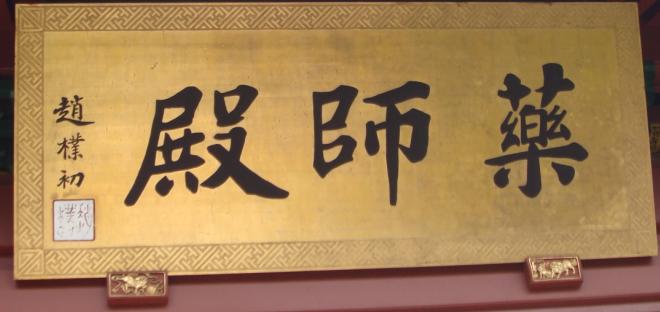 藥師殿
趙樸初